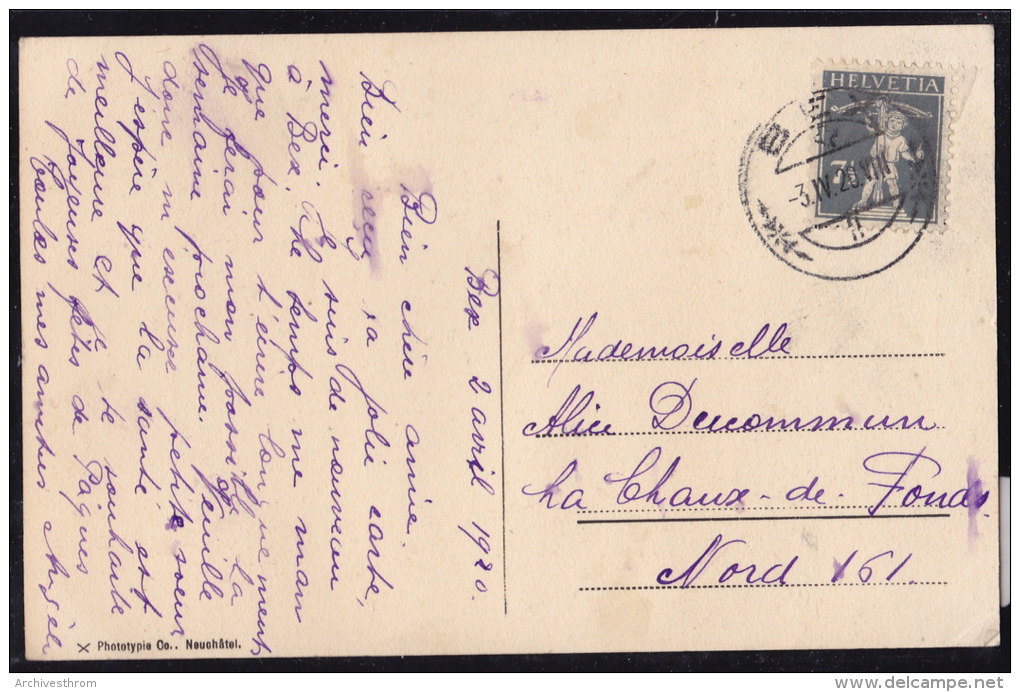 Bex 2 avril 1920.
Bien chère amie.
Bien reçu ta jolie carte,
merci. Je suis de nouveau
à Bex. Le temps me man
que pour t'écrire longuement
Je ferai mon possible la
semaine prochaine.
donc m'excuse petite sœur
J'espère que la santé est
meilleure et je te souhaite
de joyeuses fêtes de Pâques
Toutes mes amitiés
X Phototypie Co., Neuchâtel.
HELVETIA
7½
BEX
-3.IV.20.VIII
Mademoiselle
Alice Ducommun
La Chaux-de-Fonds.
Nord 161.
Archivesthrom
www.delcampe.net